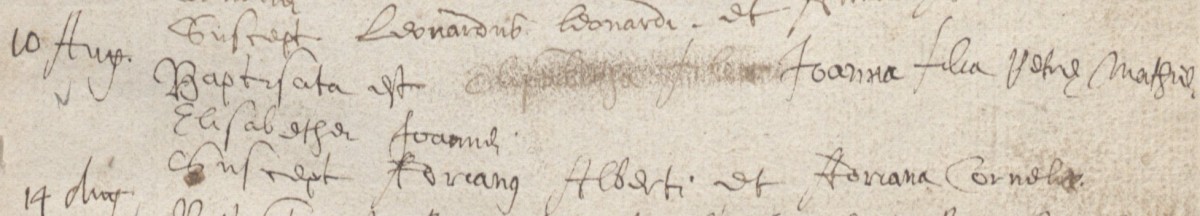 Suscept Leonardus Leonardi. et
10 Aug. Baptisata est Joanna filia Petri Mathie
Elisabethe Joannis
Suscept Adrianus Alberti et Adriana Cornelii.
14 Aug